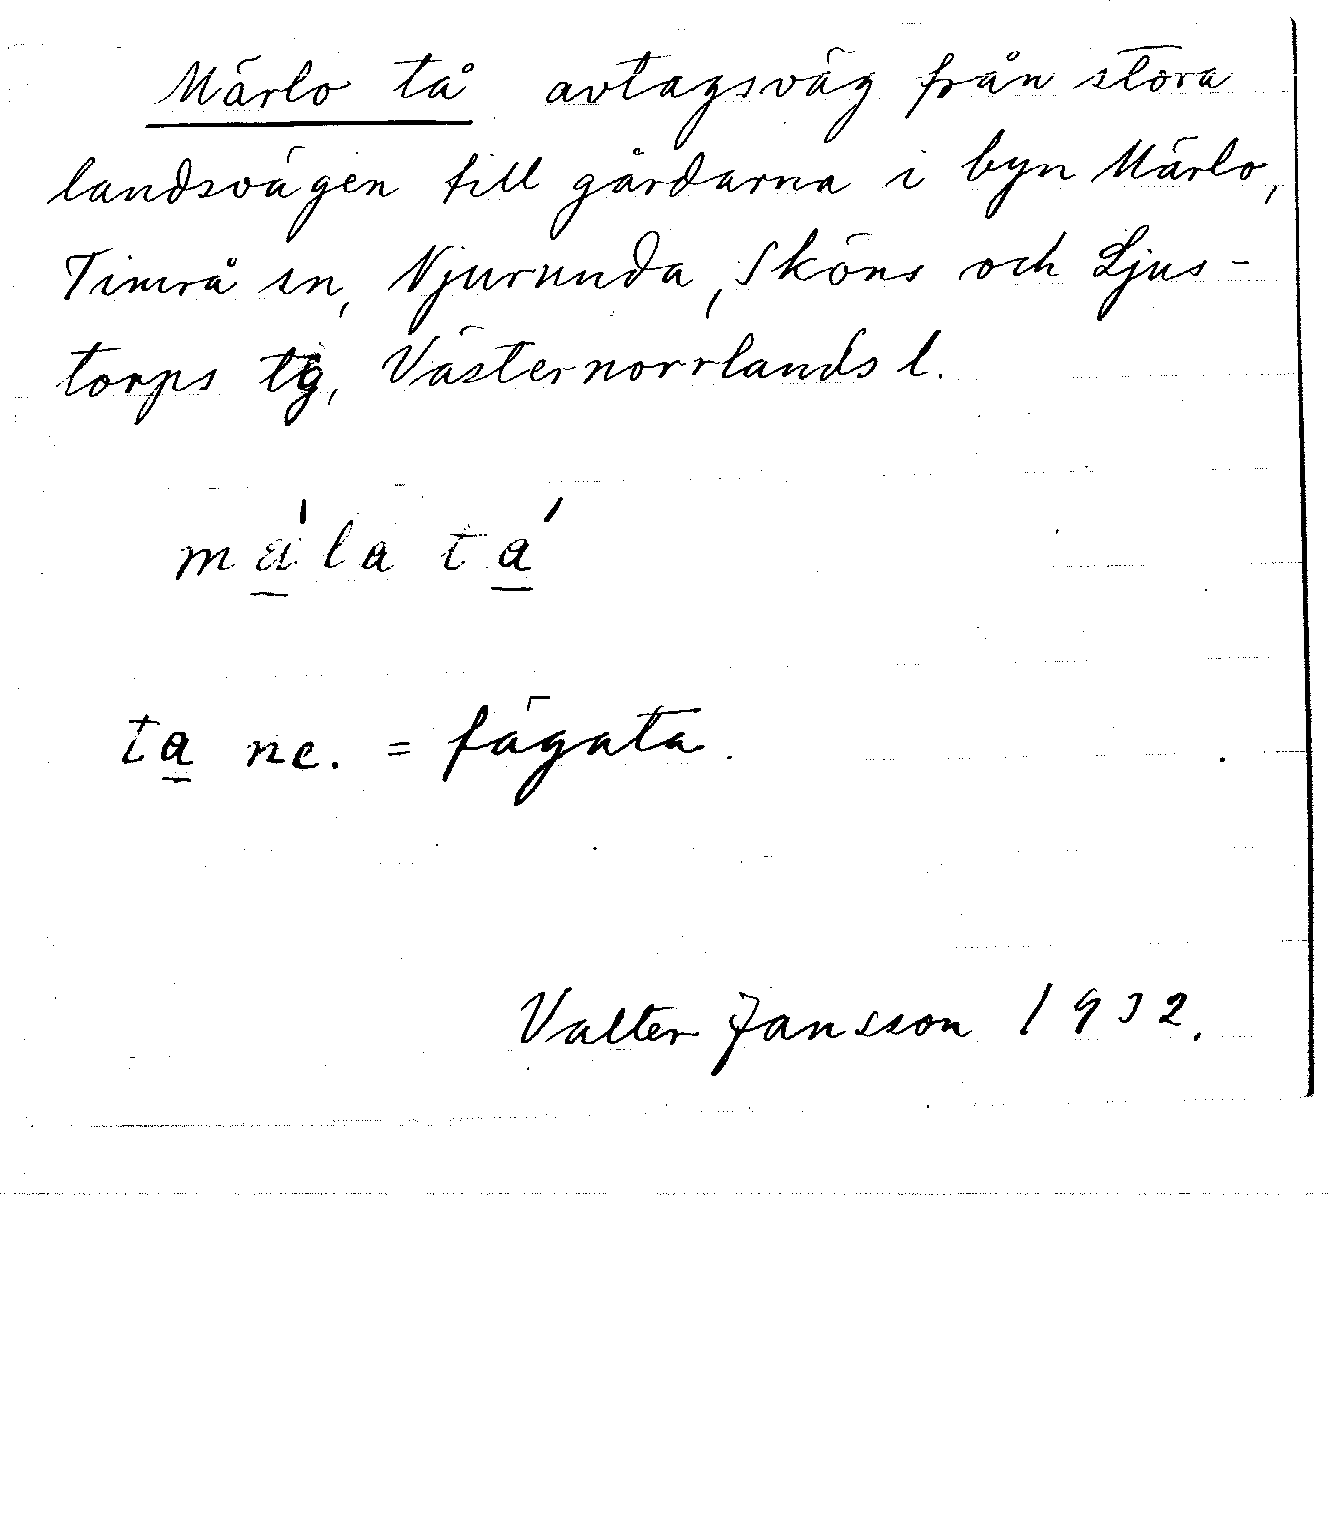 Märlo tå avtagsväg från stora
landsvägen till gårdarna i byn Märlo,
Timrå sn, Njurunda, Sköns och Ljus-
torps tg, Västernorrlands l.
mä̲'la ta̲´
ta̲ ne. = fägata.
Valter Jansson 1932.